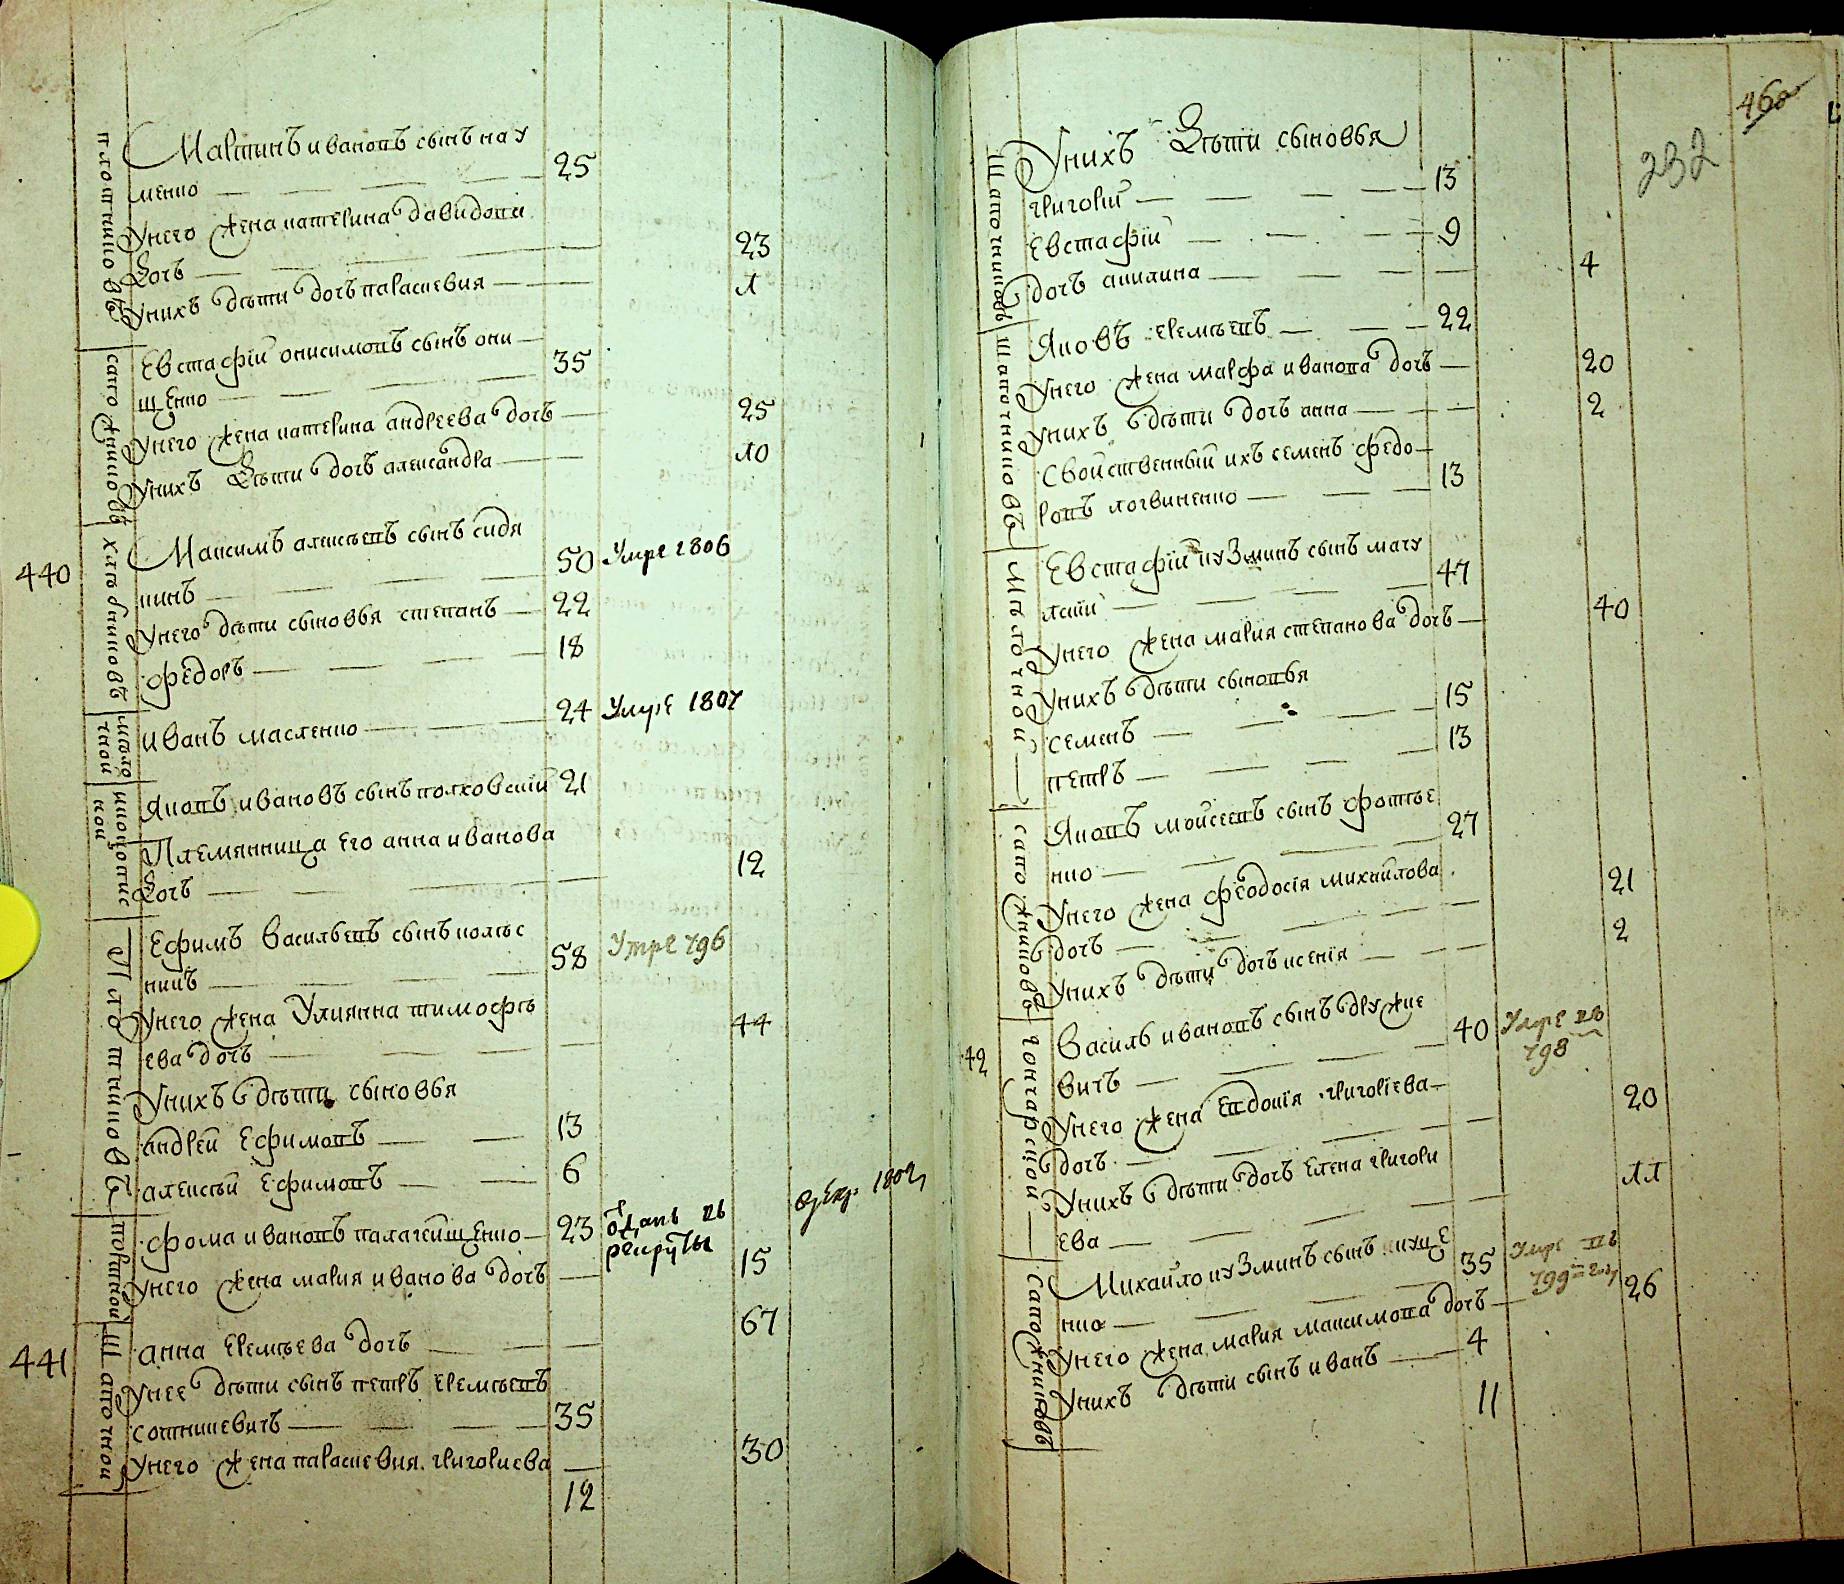 Мартинъ ивановъ сынъ нау
менко 25
унего жена катерина давидова
дочь 23
унихъ дѣти дочь параскевия 1
Евстафій онисимовъ сынъ они
щенко 35
унего жена катерина андреева дочь 25
унихъ дѣти дочь александра 10
сапожниковъ
440
Максимъ алексѣевъ сынъ сидя
кинъ 50 умре 1806
унего дѣти сыновья степанъ 22
федоръ 18
иванъ масленко 24 умре 1807
Яковъ ивановъ сынъ полховский 21
Племянница его анна иванова
дочь 12
Ефимъ васильевъ сынъ колѣс
никъ 58 умре 796
унего жена улиянна тимофѣ
ева дочь 44
унихъ дѣти сыновья
андрей Ефимовъ 13
алексѣй Ефимовъ 6
фома ивановъ палагейщенко 23 отданъ въ рекруты
унего жена мария иванова дочь 15
441
анна еремѣева дочь 67
унее дѣти сынъ петръ еремѣевъ
сотникевичъ 35
унего жена параскевия григориева 30
12
460
232
унихъ дѣти сыновья
григорій 13
Евстафій 9
дочь акилина 4
Яковъ еремѣевъ 22
унего жена марфа иванова дочь 20
унихъ дѣти дочь анна 2
Свойственный ихъ семенъ федо
ровъ логвиненко 13
Евстафій кузминъ сынъ мачу
лскій 47
унего жена мария степанова дочь 40
унихъ дѣти сыновья
семенъ 15
петръ 13
Яковъ мойсеевъ сынъ фотіе
нко 27
унего жена феодосія михайлова
дочь 21
унихъ дѣти дочь ксенія 2
сапожниковъ
42
Василь ивановъ сынъ друже
вичъ 40 умре въ 798
унего жена Евдокія григоріева
дочь 20
унихъ дѣти дочь елена григори
ева 11
гончарской
Михайло кузминъ сынъ
нко 35 умре въ 799 году
унего жена мария максимова дочь 26
унихъ дѣти сынъ иванъ 4
сапожниковъ
11